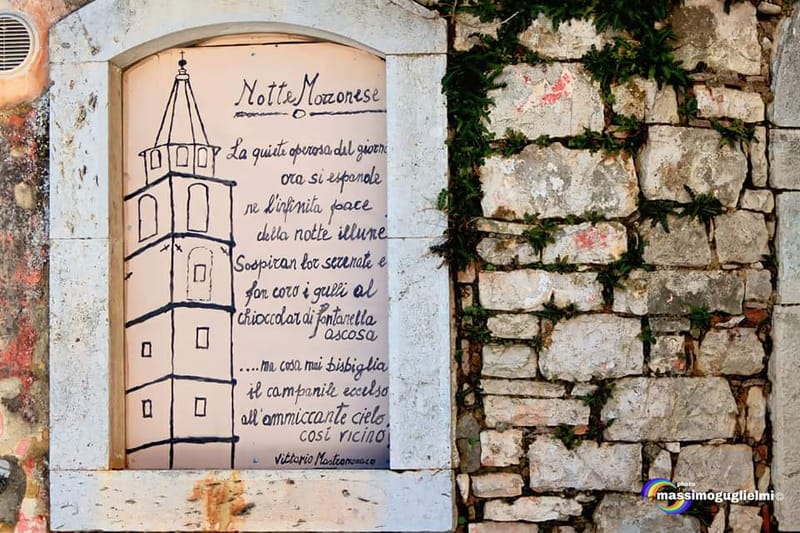 Notte Morronese
La quiete operosa del giorno
ora si espande
ne l'infinita pace
della notte illune
Sospiran lor serenate e
fan coro i grilli al
chioccolar di fontanella
ascosa
....ma cosa mai bisbiglia
il campanile eccelso
all'ammiccante cielo
così vicino
Vittorio Mastromonaco
photo
massimoguglielmi©